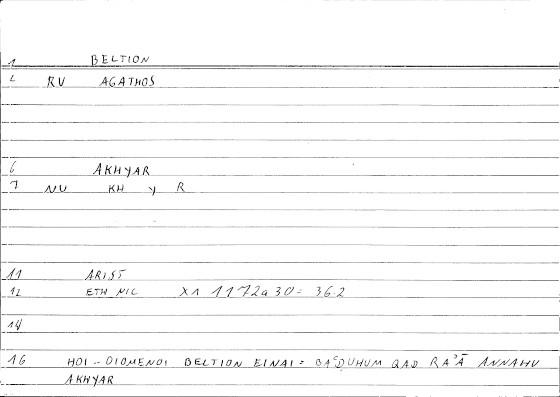 1 BELTION
2 RV AGATHOS
6 AKHYAR
7 NV KH Y R
11 ARIST
12 ETH NIC X1 1172a30 = 36.2
14
16 HOI - OIOMENOI BELTION EINAI = BAʿḌUHUM QAD RAʾĀ ANNAHU
AKHYAR